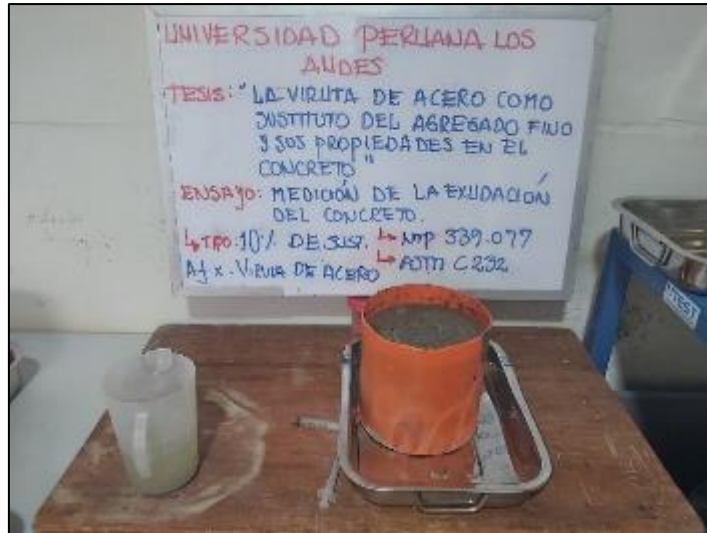 UNIVERSIDAD PERUANA LOS
ANDES
TESIS: "LA VIRUTA DE ACERO COMO
SUSTITUTO DEL AGREGADO FINO
Y SUS PROPIEDADES EN EL
CONCRETO"
ENSAYO: MEDICIÓN DE LA EXUDACIÓN
DEL CONCRETO.
↳ TIPO: 10% DE SUST. ↳ NTP 339.077
Af x. VIRUTA DE ACERO ↳ ASTM C232
TEST